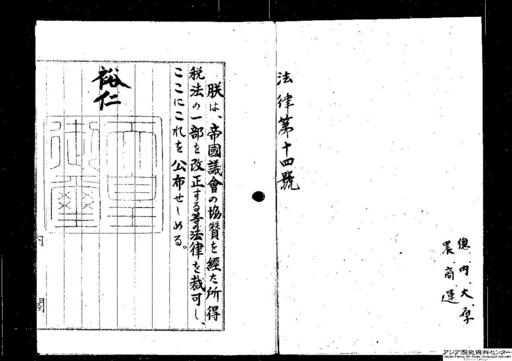 法律第十四號
總内大厚
農商運
朕は、帝國議會の協贊を経た所得
税法の一部を改正する等の法律を裁可し、
ここにこれを公布せしめる。
裕仁
天皇
御璽
内閣
アジア歴史資料センター